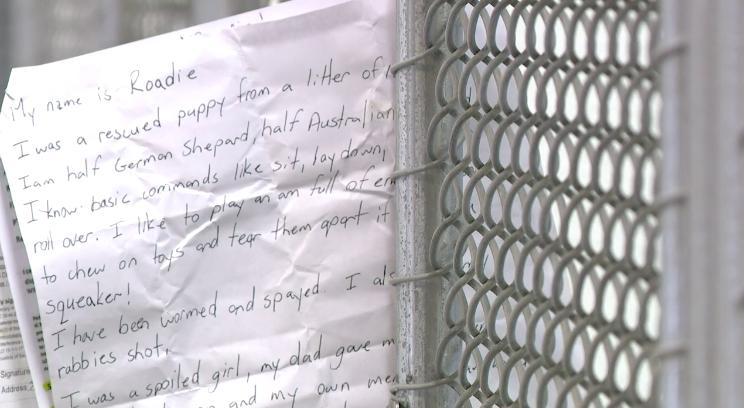 My name is Roadie
I was a rescued puppy from a litter of
I am half German Shepard, half Australian
I know basic commands like sit, lay down,
roll over. I like to play an am full of en
to chew on toys and tear them apart it
squeaker!
I have been wormed and spayed. I als
rabbies shot,
I was a spoiled girl, my dad gave m
and my own me
Signature
Address